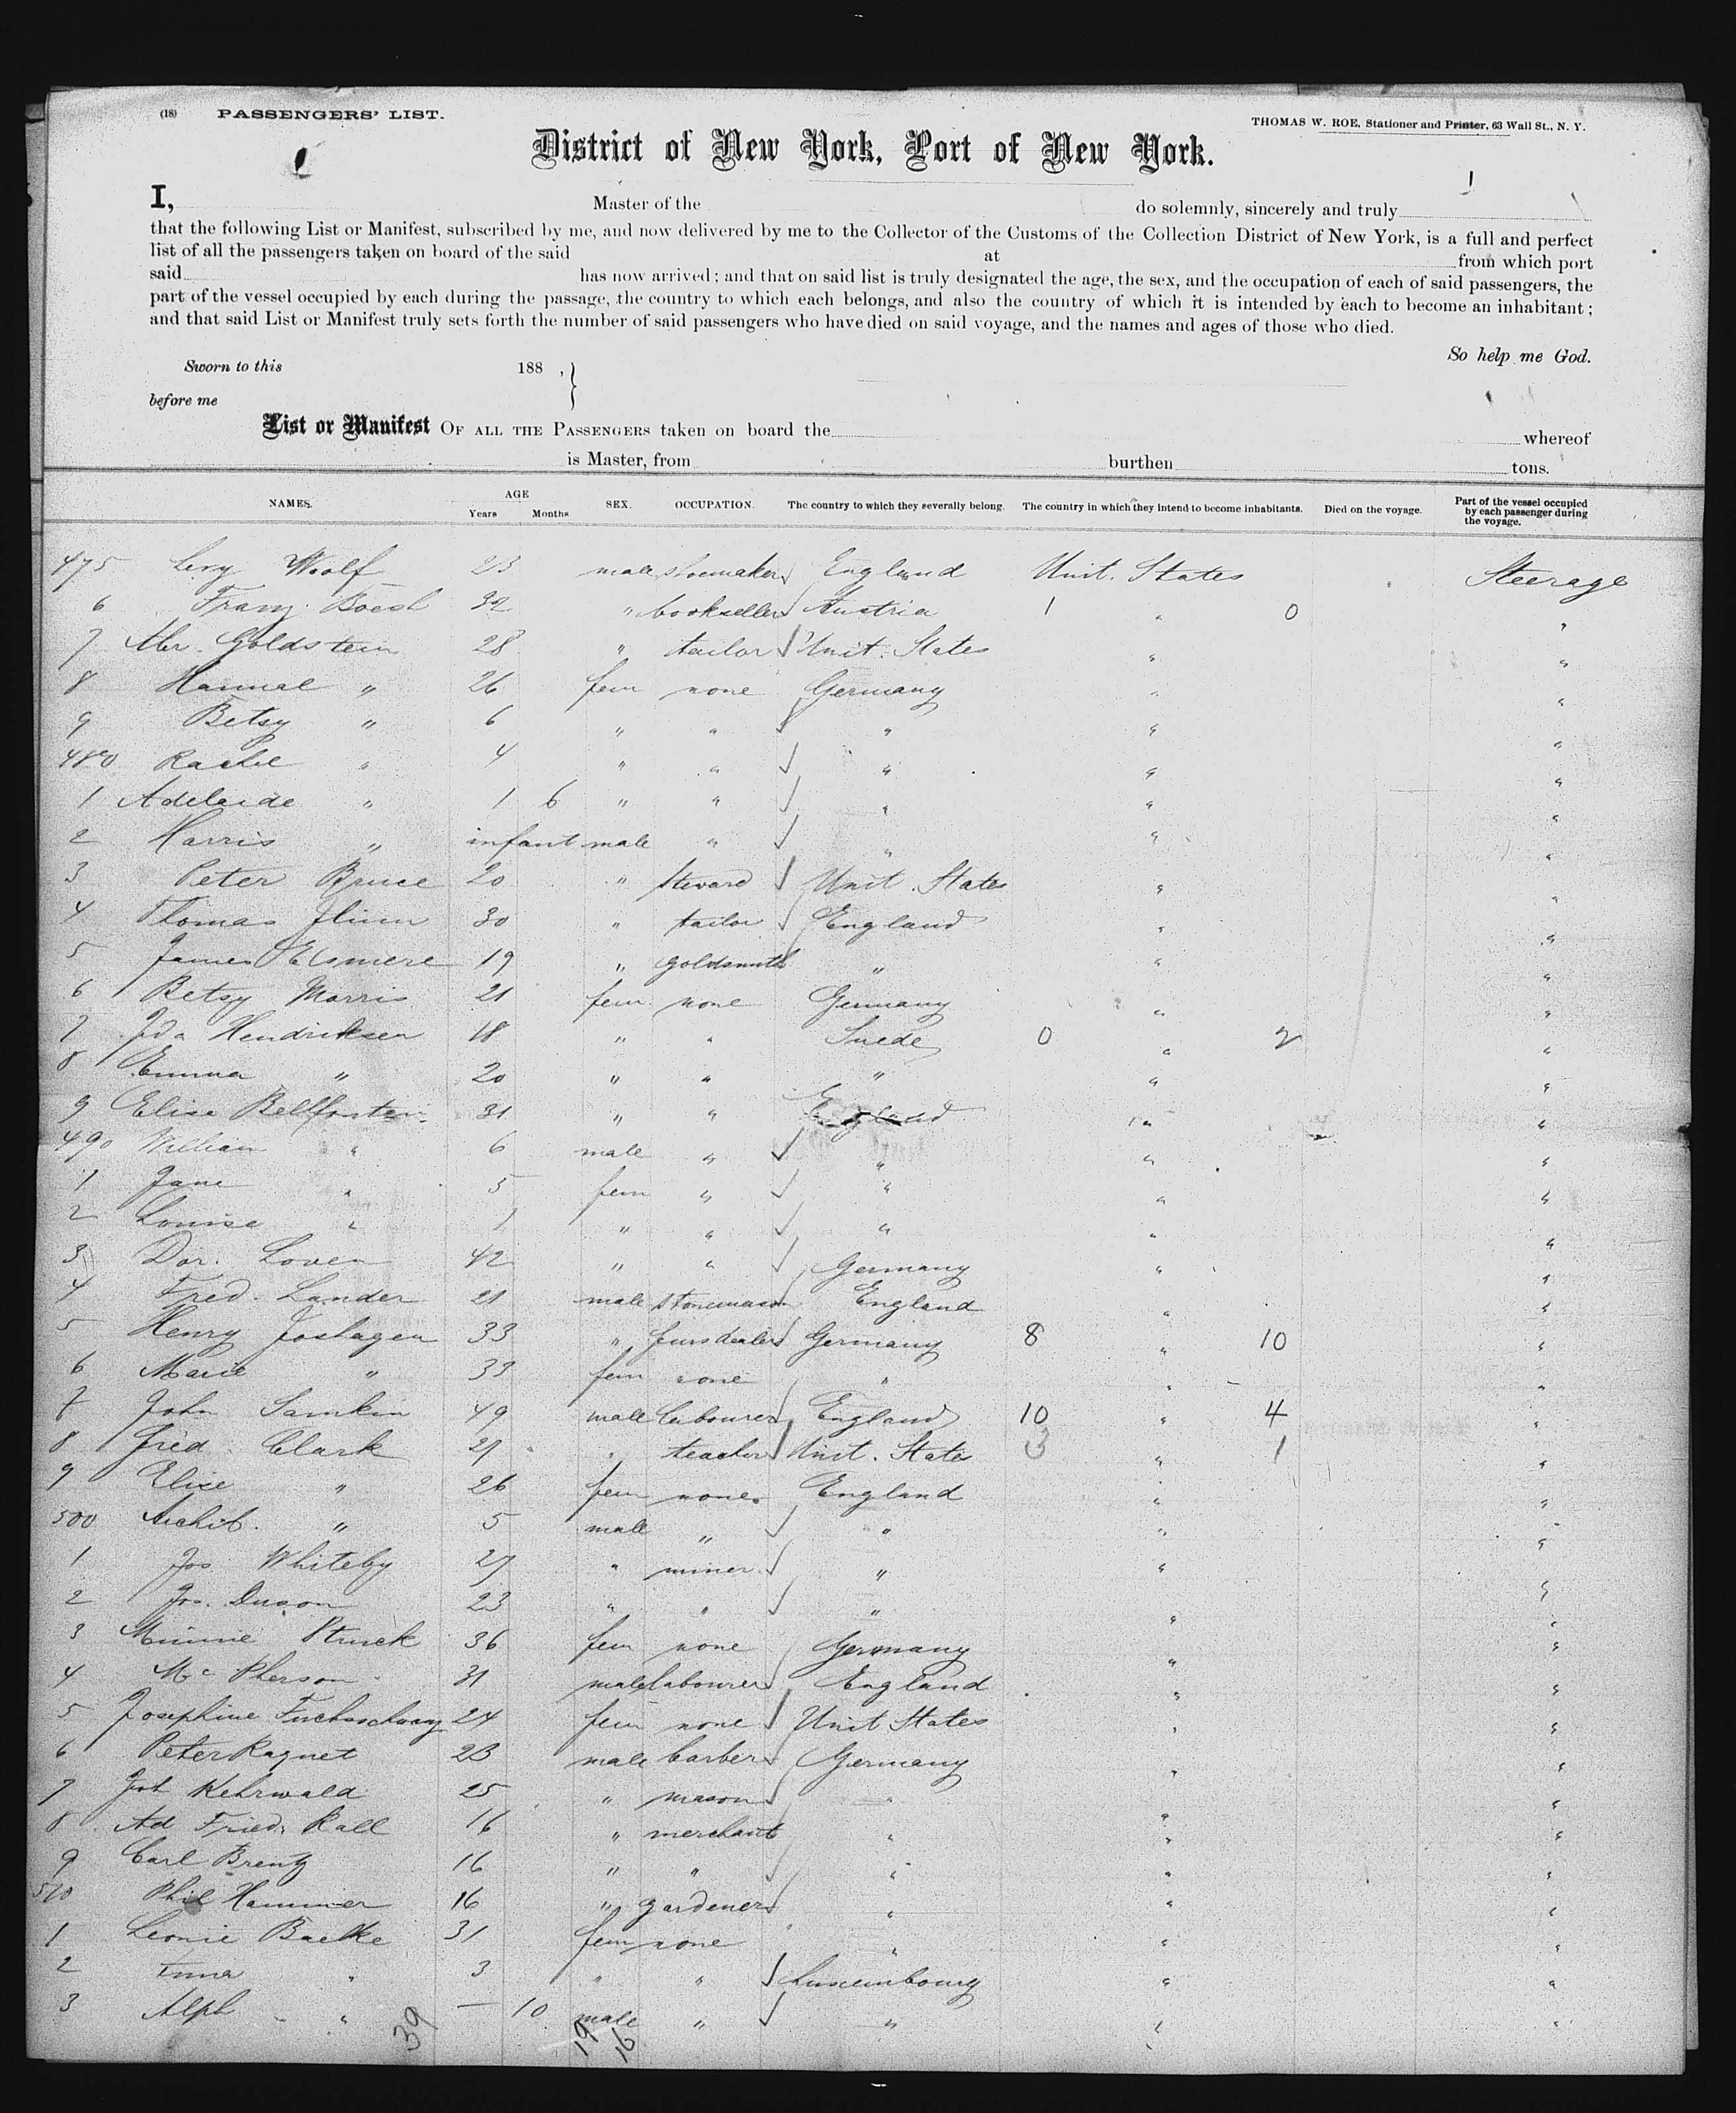 (18) PASSENGERS' LIST.
THOMAS W. ROE, Stationer and Printer, 63 Wall St., N. Y.
District of New York, Port of New York.
I, Master of the do solemnly, sincerely and truly
that the following List or Manifest, subscribed by me, and now delivered by me to the Collector of the Customs of the Collection District of New York, is a full and perfect
list of all the passengers taken on board of the said at from which port
said has now arrived; and that on said list is truly designated the age, the sex, and the occupation of each of said passengers, the
part of the vessel occupied by each during the passage, the country to which each belongs, and also the country of which it is intended by each to become an inhabitant;
and that said List or Manifest truly sets forth the number of said passengers who have died on said voyage, and the names and ages of those who died.
So help me God.
Sworn to this 188 ,
before me
List or Manifest OF ALL THE PASSENGERS taken on board the whereof
is Master, from burthen tons.
NAMES. AGE Years Months SEX. OCCUPATION. The country to which they severally belong. The country in which they intend to become inhabitants. Died on the voyage. Part of the vessel occupied by each passenger during the voyage.
475 Levy Woolf 23 male shoemaker England Unit. States Steerage
6 Franz Boesl 32 " bookseller Austria 1 " 0 "
7 Abr. Goldstein 28 " tailor Unit. States " "
8 Hannah " 26 fem none Germany " "
9 Betsy " 6 " " " " "
480 Rachel " 4 " " " " "
1 Adelaide " 1 6 " " " " "
2 Harris " infant male " " " "
3 Peter Bruce 20 " steward Unit. States " "
4 Thomas Flinn 30 " tailor England " "
5 James Elsmere 19 " goldsmith " " "
6 Betsy Morris 21 fem none Germany " "
7 Ida Hendriksen 18 " " Suede 0 " 2 "
8 Emma " 20 " " " " "
9 Elise Bellfontein 31 " " England " "
490 William " 6 male " " " "
1 Jane " 5 fem " " " "
2 Louise " 1 " " " " "
3 Dor. Loven 42 " " Germany " "
4 Fred. Lander 21 male stonemason England " "
5 Henry Joshagen 33 " fursdealer Germany 8 " 10 "
6 Marie " 33 fem none " " "
7 John Samkin 49 male labourer England 10 " 4 "
8 Fred. Clark 27 " teacher Unit. States 3 " 1 "
9 Elise " 26 fem none England " "
500 Archib. " 5 male " " " "
1 Jos. Whiteby 27 " miner " " "
2 Jos. Duson 23 " " " " "
3 Minnie Struck 36 fem none Germany " "
4 Mc Pherson 31 male labourer England " "
5 Josephine 24 fem none Unit States " "
6 Peter Ragnet 23 male barber Germany " "
7 Joh Kehrwald 25 " mason " " "
8 Ad Fried. Rall 16 " merchant " " "
9 Carl Brentz 16 " " " " "
510 Phil Hammer 16 " gardener " " "
1 Leonie Baelke 31 fem none " " "
2 Anna " 3 " " Luxembourg " "
3 Alph " — 10 male " " " "
39 19 16